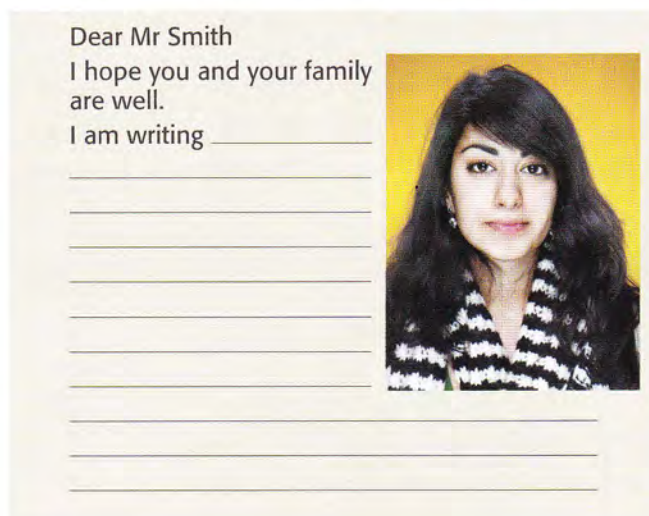 Dear Mr Smith
I hope you and your family
are well.
I am writing